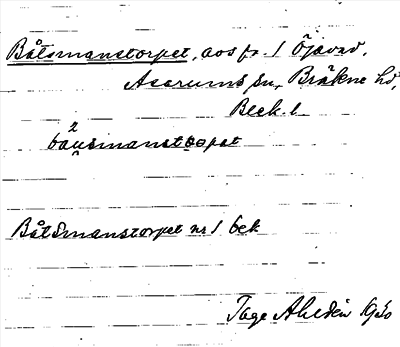 Båtsmanstorpet, avs fr. 1 Öjavad,
Asarums sn, Bräkne hd,
Blek. l.
båusmanstorpet
Båtsmanstorpet nr 1 bek
Tage Ahldén 1930